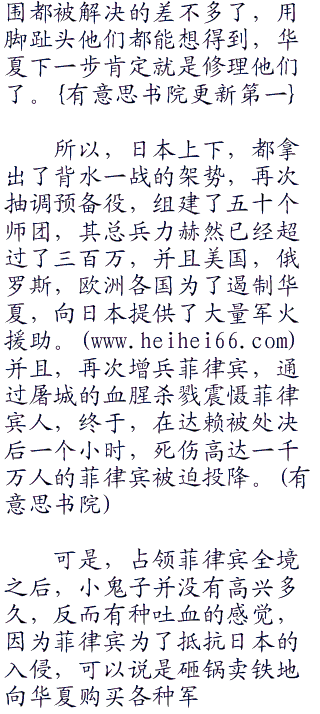 围都被解决的差不多了，用
脚趾头他们都能想得到，华
夏下一步肯定就是修理他们
了。{有意思书院更新第一}
所以，日本上下，都拿
出了背水一战的架势，再次
抽调预备役，组建了五十个
师团，其总兵力赫然已经超
过了三百万，并且美国，俄
罗斯，欧洲各国为了遏制华
夏，向日本提供了大量军火
援助。(www.heihei66.com)
并且，再次增兵菲律宾，通
过屠城的血腥杀戮震慑菲律
宾人，终于，在达赖被处决
后一个小时，死伤高达一千
万人的菲律宾被迫投降。(有
意思书院)
可是，占领菲律宾全境
之后，小鬼子并没有高兴多
久，反而有种吐血的感觉，
因为菲律宾为了抵抗日本的
入侵，可以说是砸锅卖铁地
向华夏购买各种军